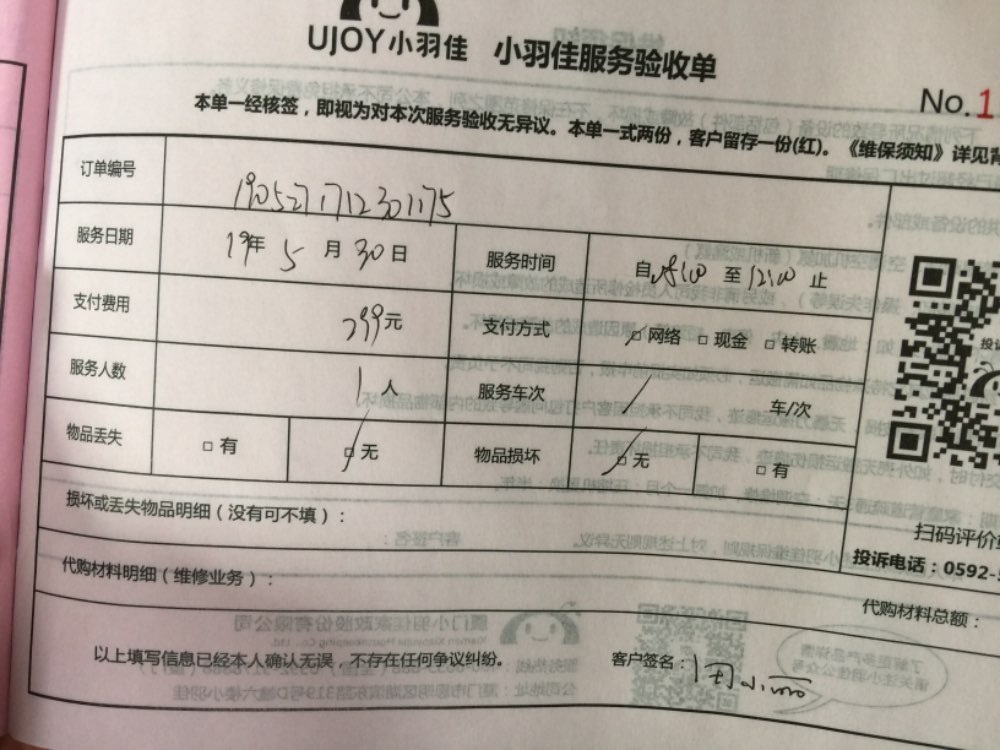 UJOY小羽佳 小羽佳服务验收单
No.1
本单一经核签，即视为对本次服务验收无异议。本单一式两份，客户留存一份(红)。《维保须知》详见背
订单编号 1905271712301175
服务日期 19年 5 月 30 日 服务时间 自 至 12:00 止
支付费用 299元 支付方式 □网络 □现金 □转账
服务人数 1人 服务车次 / 车/次
物品丢失 □有 □无 物品损坏 □无 □有
损坏或丢失物品明细（没有可不填）：
扫码评价
投诉电话：0592-
代购材料明细（维修业务）：
代购材料总额：
以上填写信息已经本人确认无误，不存在任何争议纠纷。 客户签名：